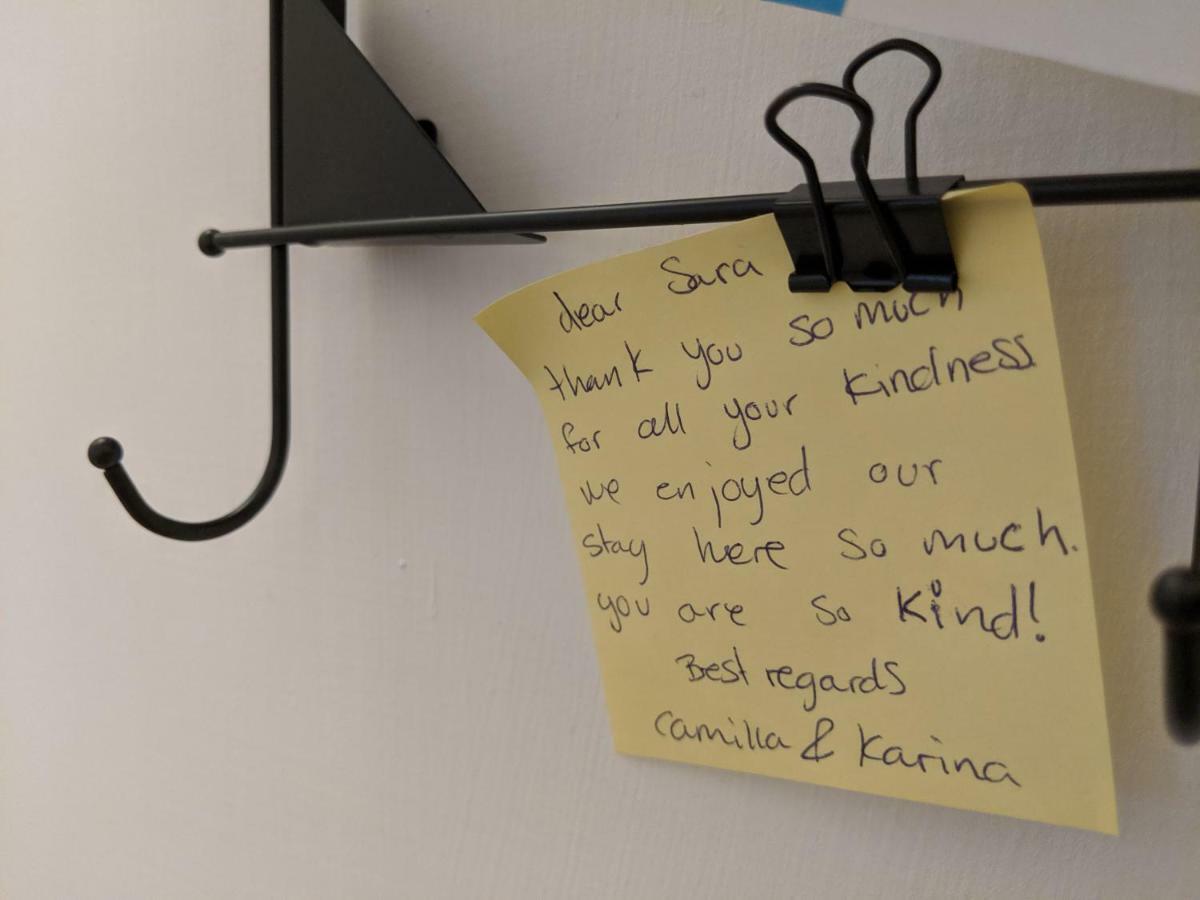 dear Sara
thank you so much
for all your kindness
we enjoyed our
stay here so much.
you are so kind!
Best regards
Camilla & Karina